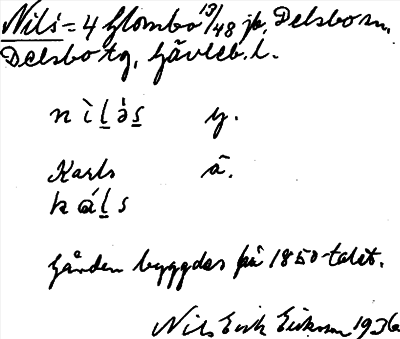 Nils = 4 Glombo 13/48 jb, Delsbo sn,
Delsbo tg, Gävleb. l.
n ì l ə̀ s y.
Karls ä.
k á l s
Gården byggdes på 1850-talet.
Nils Erik Eriksson 1936